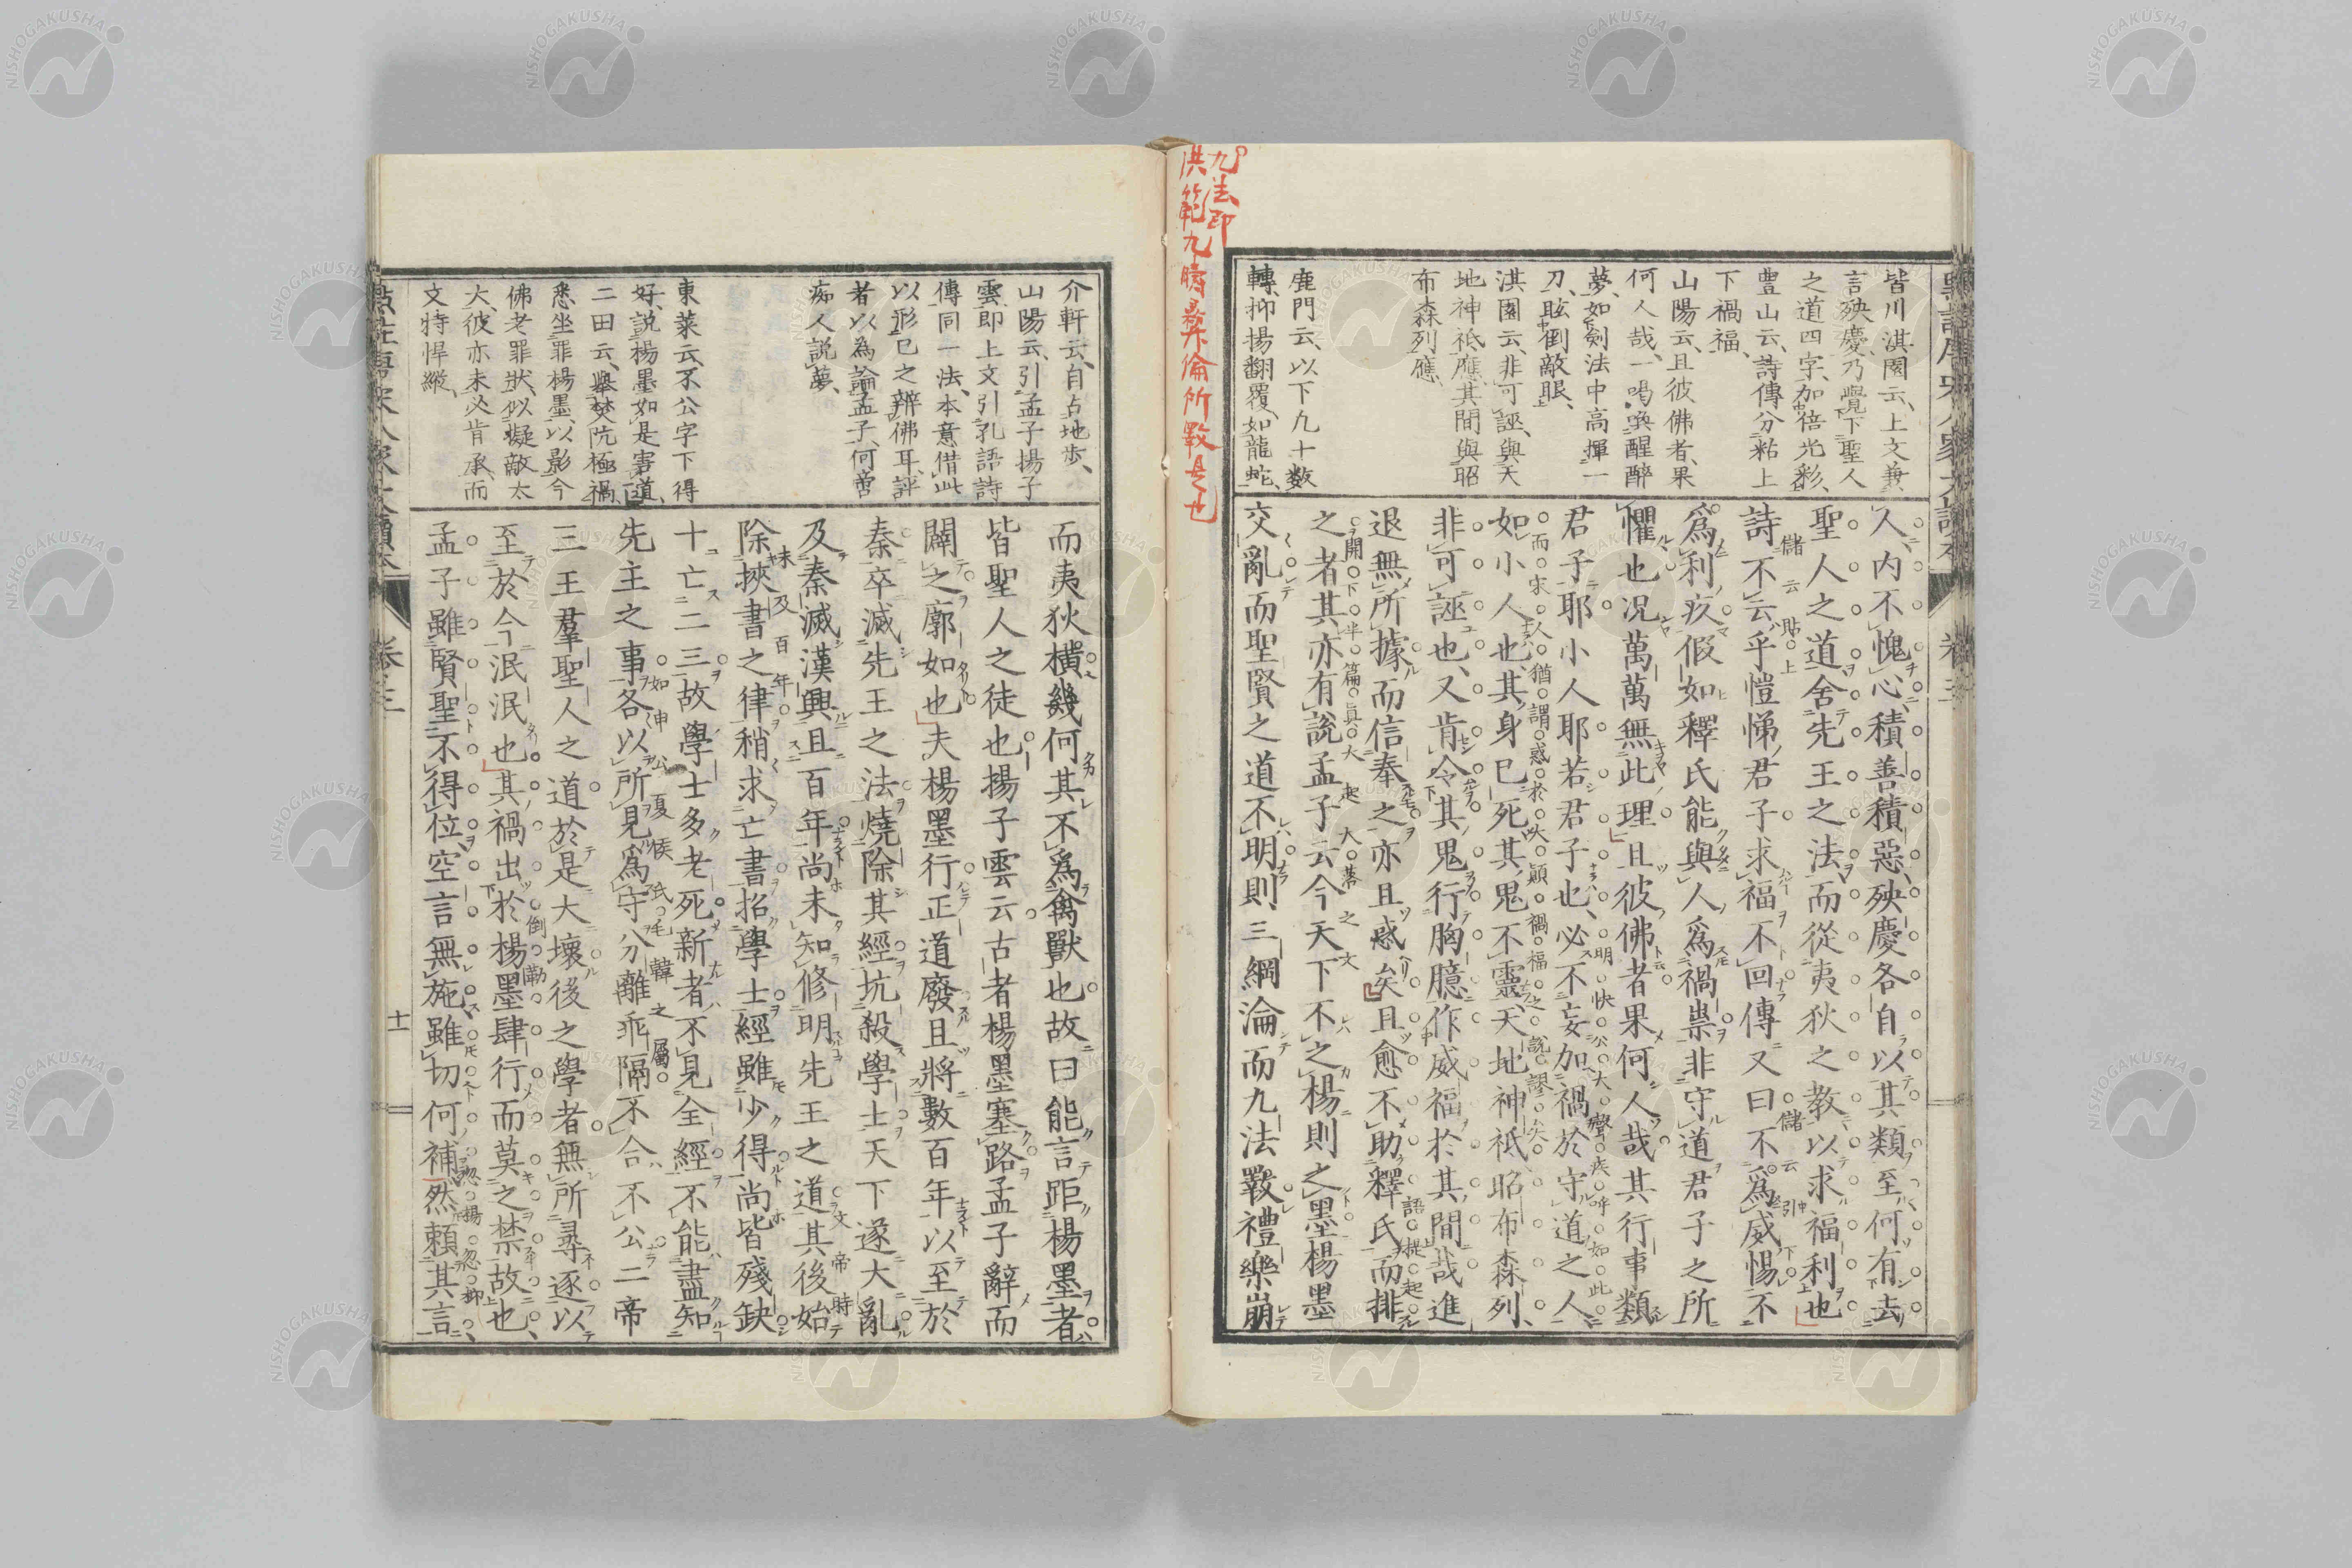 九法即
洪範九疇彝倫所斁是也
皆川淇園云、上文兼
言殃慶、乃覺下聖人
之道四字、加倍光彩、
豊山云、詩傳分粘上
下禍福、
山陽云、且彼佛者、果
何人哉、一喝喚醒醉
夢、如劍法中高揮一
刀、眩倒敵眼、
淇園云、非可誣、與天
地神祇應、其間與昭
布森列應、
鹿門云、以下九十数
轉、抑揚翻覆、如龍蛇、
人內不愧心積善積惡殃慶各自以其類至何有去
聖人之道舍先王之法而從夷狄之教以求福利也
詩不云乎愷悌君子求福不回傳又曰不爲威惕不
爲利疚假如釋氏能與人爲禍祟非守道君子之所
懼也況萬萬無此理且彼佛者果何人哉其行事類
君子耶小人耶若君子也必不妄加禍於守道之人
如小人也其身已死其鬼不靈天地神祇昭布森列
非可誣也又肯令其鬼行胸臆作威福於其間哉進
退無所據而信奉之亦且惑矣且愈不助釋氏而排
之者其亦有說孟子云今天下不之楊則之墨楊墨
交亂而聖賢之道不明則三綱淪而九法斁禮樂崩
儲云貼上
儲云引
明快公大聲疾呼如此
而宋人猶謂惑於大顛禍福之說謬矣
語提起
開下半篇眞大起大落之文
卷三
介軒云、自占地歩、
山陽云、引孟子揚子
雲、即上文引孔語詩
傳同一法、本意借此
以形已之辨佛耳、評
者以為論孟子、何啻
痴人說夢、
東萊云、不公字下得
好、說楊墨如是害道、
二田云、擧焚阬極禍、
悉坐罪楊墨、以影今
佛老罪狀、似擬敵太
大、彼亦未必肯承、而
文特悍縱、
而夷狄橫幾何其不爲禽獸也故曰能言距楊墨者
皆聖人之徒也揚子雲云古者楊墨塞路孟子辭而
闢之廓如也夫楊墨行正道廢且將數百年以至於
秦卒滅先王之法燒除其經坑殺學士天下遂大亂
及秦滅漢興且百年尚未知修明先王之道其後始
除挾書之律稍求亡書招學士經雖少得尚皆殘缺
十亡二三故學士多老死新者不見全經不能盡知
先王之事各以所見爲守分離乖隔不合不公二帝
三王羣聖人之道於是大壞後之學者無所尋逐以
至於今泯泯也其禍出於楊墨肆行而莫之禁故也
孟子雖賢聖不得位空言無施雖切何補然賴其言
文帝時
末及百年
如申公夏侯氏毛韓之屬
倒勒
忽揚忽抑
卷三
十一